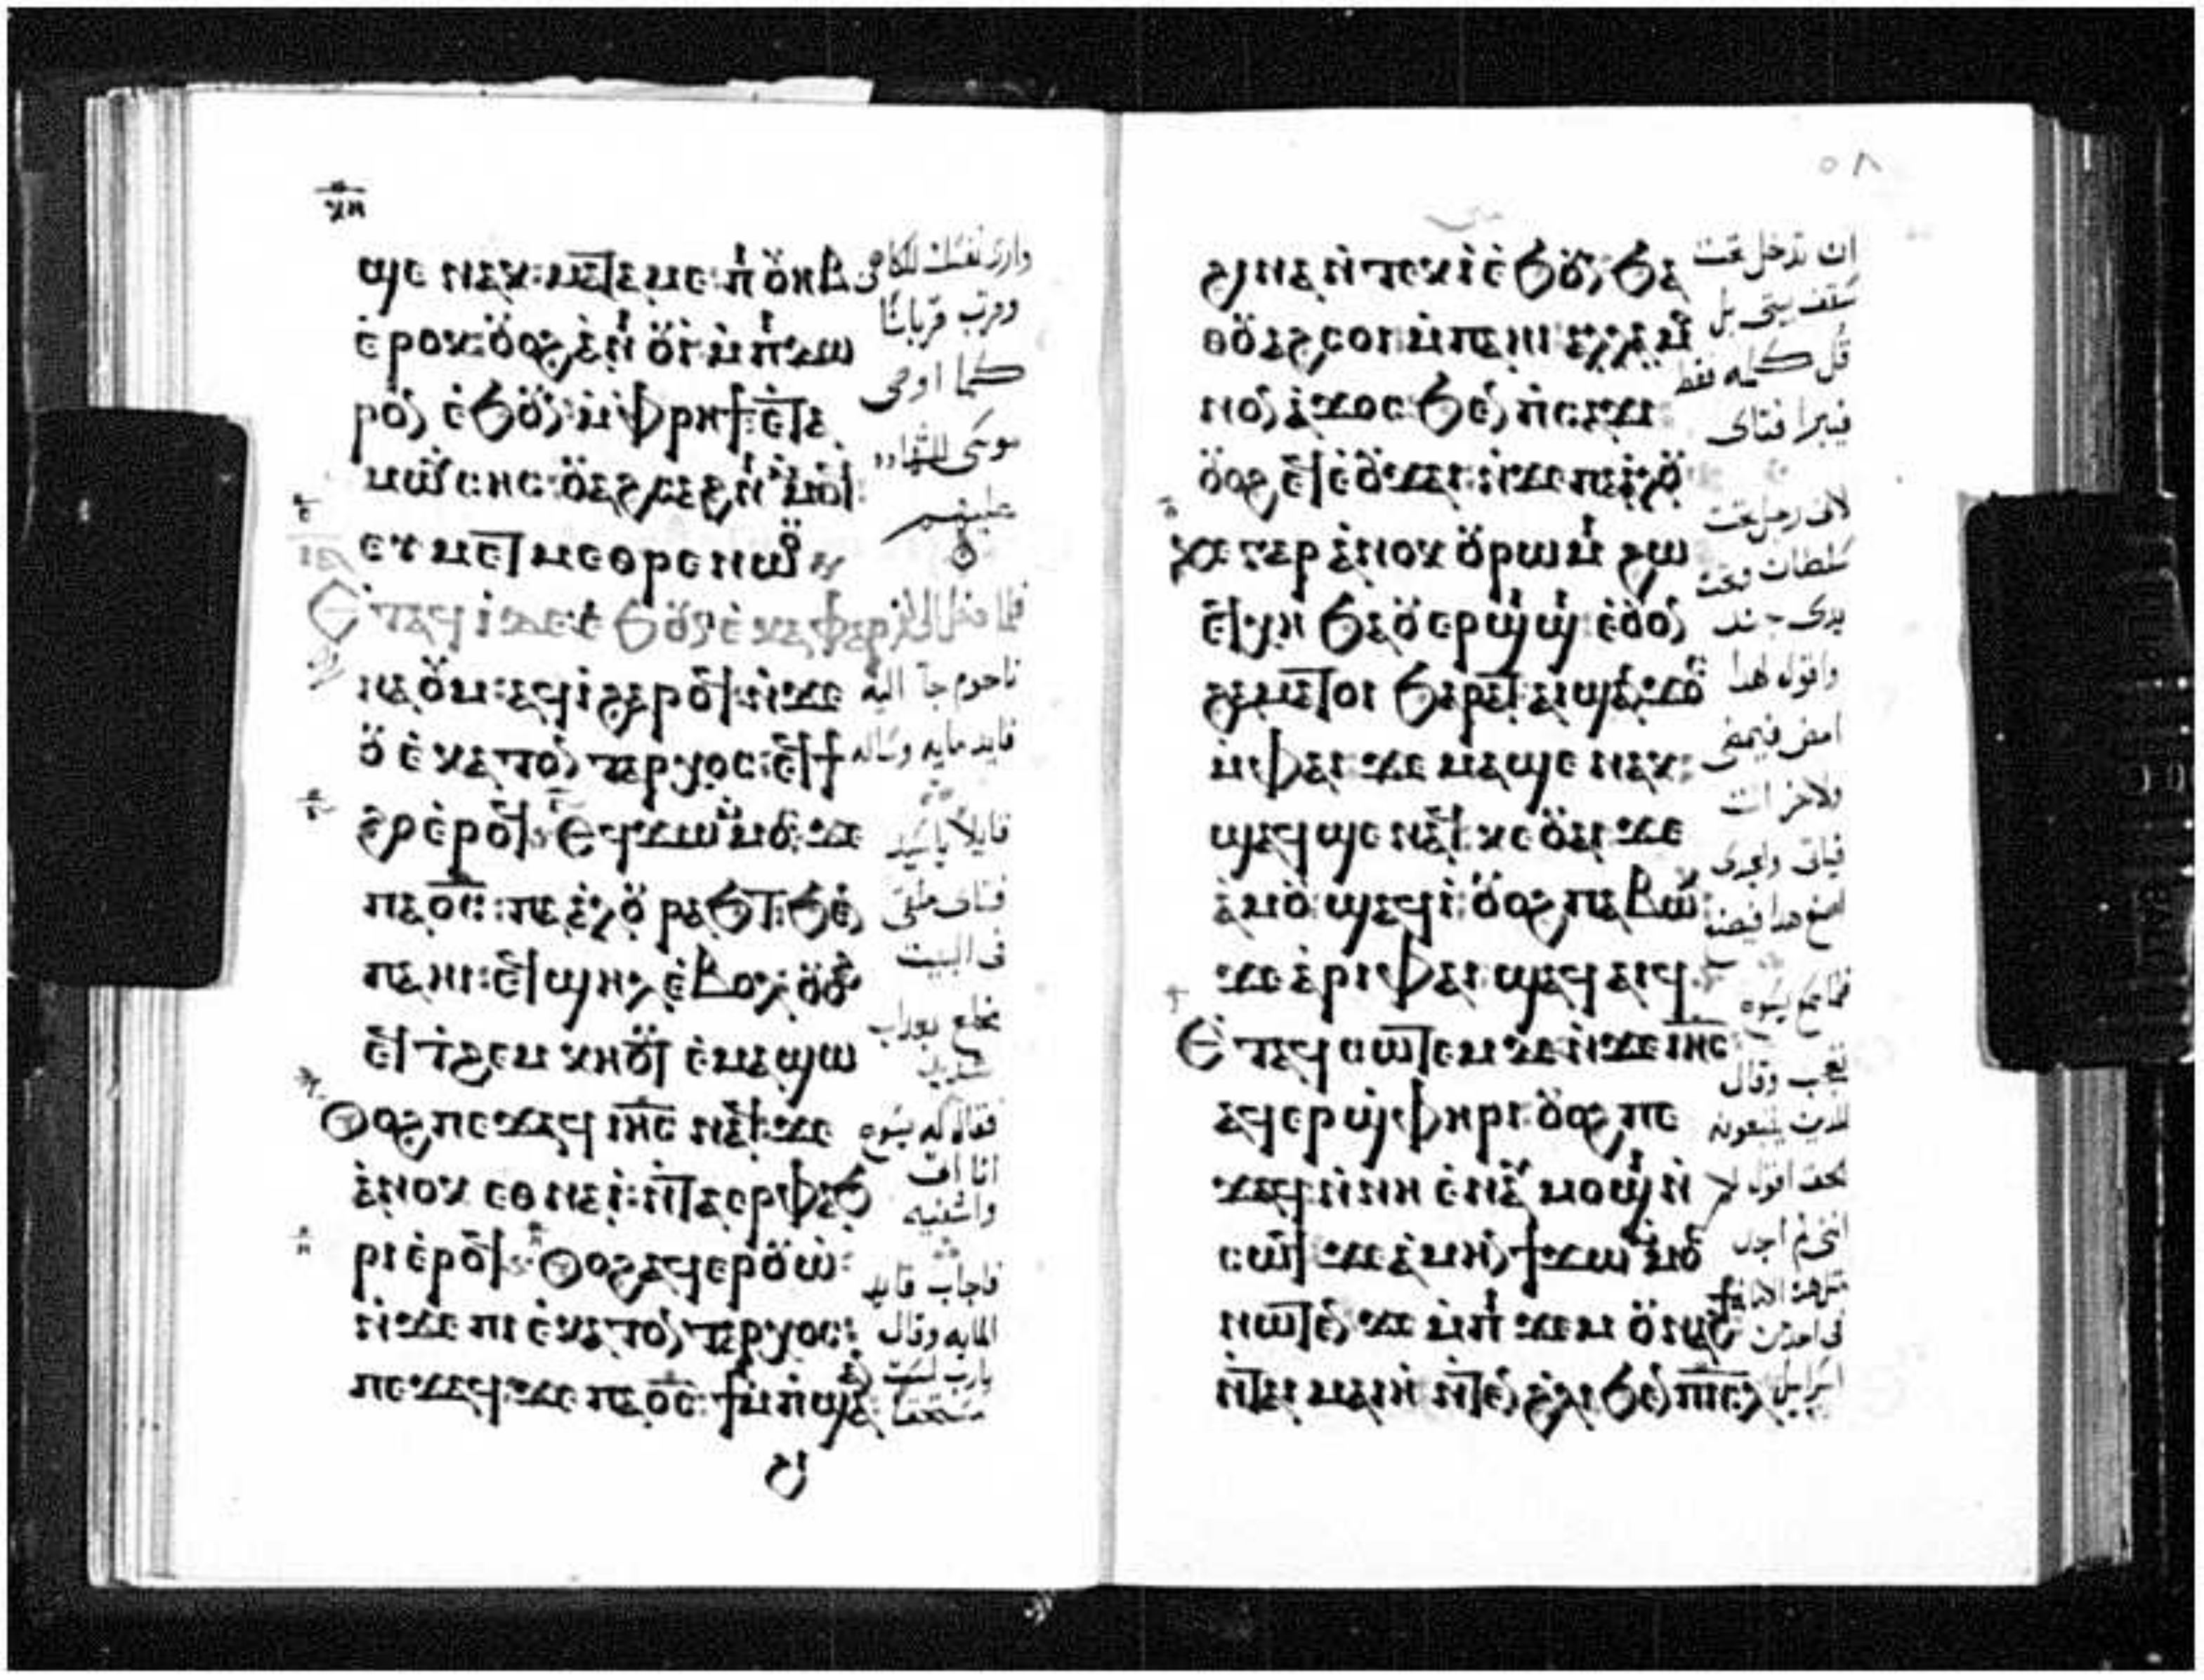 ⲕⲏ
ϣⲉ ⲛⲁⲕ: ⲙⲁⲧⲁⲙⲉ: ⲡⲓⲟⲩⲏⲃ
ⲉⲣⲟⲕ: ⲟⲩⲟϩ ⲁⲛⲓⲟⲩⲓ ⲙⲡⲓⲇⲱ
ⲣⲟⲛ ⲉϧⲟⲩⲛ: ⲙⲫⲣⲏϯ: ⲉⲧⲁ
ⲙⲱⲩⲥⲏⲥ: ⲟⲩⲁϩⲥⲁϩⲛⲓ ⲙⲙⲟϥ:
ⲉⲩⲙⲉⲧⲙⲉⲑⲣⲉ ⲛⲱⲟⲩ
Ⲉⲧⲁϥⲓ ⲇⲉ: ⲉϧⲟⲩⲛ ⲉⲕⲁⲫⲁⲣ
ⲛⲁⲟⲩⲙ: ⲁϥⲓ ϩⲁⲣⲟϥ: ⲛϫⲉ
ⲟⲩⲉⲕⲁⲧⲟⲛⲧⲁⲣⲭⲟⲥ: ⲉϥϯ
ϩⲟ ⲉⲣⲟϥ: Ⲉϥϫⲱ ⲙⲙⲟⲥ: ϫⲉ
ⲡⲁϭⲥ: ⲡⲁⲁⲗⲟⲩ ⲣⲁϧⲧ: ϧⲉⲛ
ⲡⲁⲏⲓ: ⲉϥϣⲏⲗ ⲉⲃⲟⲗ ⲟⲩⲟϩ
ⲉϥⲧϩⲉⲙⲕⲏⲟⲩⲧ ⲉⲙⲁϣⲱ
Ⲟⲩⲟϩ ⲡⲉϫⲁϥ ⲓⲏⲥ ⲛⲁϥ: ϫⲉ
ⲁⲛⲟⲕ ⲉⲑⲛⲁⲓ: ⲛⲧⲁⲉⲣⲫⲁϧ
ⲣⲓ ⲉⲣⲟϥ: Ⲟⲩⲟϩ ⲁϥⲉⲣⲟⲩⲱ:
ⲛϫⲉ ⲡⲓⲉⲕⲁⲧⲟⲛⲧⲁⲣⲭⲟⲥ:
ⲡⲉϫⲁϥ: ϫⲉ ⲡⲁϭⲥ: ϯⲙⲡϣⲁ
ϩⲓ
وارى نفسك للكاهن
وقرب قربانًا
كما اوصى
موسى للشهاده
عليهم
فلما دخل الى كفر
ناحوم جآ اليه
قايد مايه وساله
قايلاً يا سيد
فتاى ملقى
فى البيت
مخلع بعداب
شديد
فقال له يسوع
انا اتى
واشفيه
فاجاب قايد
المايه وقال
يارب لست
مستحقا
٥٨
متى
ϩⲓⲛⲁ ⲛⲧⲉⲕⲓ ⲉϧⲟⲩⲛ: ϧⲁ
ⲑⲟⲩⲁϩⲥⲟⲓ: ⲙⲡⲁⲏⲓ: ⲁⲗⲗⲁ ⲙⲟ
ⲛⲟⲛ ⲁϫⲟⲥ: ϧⲉⲛ ⲡⲥⲁϫⲓ
ⲟⲩⲟϩ ⲉϥⲉⲟⲩϫⲁⲓ: ⲛϫⲉ ⲡⲁⲁⲗⲟⲩ
Ⲕⲉ ⲅⲁⲣ ⲁⲛⲟⲕ ⲟⲩⲣⲱⲙⲓ ϩⲱ
ⲉϥⲭⲏ ϧⲁ ⲟⲩⲉⲣϣⲓϣⲓ: ⲉⲟⲩⲟⲛ
ϩⲁⲛⲙⲁⲧⲟⲓ ϧⲁⲣⲁⲧ: ⲁⲓϣⲁⲛϫⲟⲥ
ⲙⲫⲁⲓ: ϫⲉ ⲙⲁϣⲉ ⲛⲁⲕ:
ϣⲁϥϣⲉ ⲛⲁϥ: ⲕⲉⲟⲩⲁⲓ: ϫⲉ
ⲁⲙⲟⲩ: ϣⲁϥⲓ: ⲟⲩⲟϩ ⲡⲁⲃⲱⲕ
ϫⲉ ⲁⲣⲓ ⲫⲁⲓ: ϣⲁϥⲁⲓϥ:
Ⲉⲧⲁϥⲥⲱⲧⲉⲙ ⲇⲉ: ⲛϫⲉ ⲓⲏⲥ
ⲁϥⲉⲣϣⲫⲏⲣⲓ: ⲟⲩⲟϩ ⲡⲉ
ϫⲁϥ: ⲛⲛⲏ ⲉⲛⲁⲩⲙⲟϣⲓ ⲛ
ⲥⲱϥ: ϫⲉ ⲁⲙⲏⲛ ϯϫⲱ ⲙⲙⲟⲥ
ⲛⲱⲧⲉⲛ: ϫⲉ ⲙⲡⲓϫⲉⲙ ⲟⲩⲛⲁϩϯ
ⲛⲧⲁⲓ ⲙⲁⲓⲏ: ⲛⲧⲉⲛ ϩⲗⲓ ϧⲉⲛ ⲡⲓⲥⲗ
ان تدخل تحت
سقف بيتى بل
قُل كلمه فقط
فيبرا فتاى
لانى رجل تحت
سلطان وتحت
يدى جند
واقول لهدا
امض فيمضى
ولاخر ات
فياتى ولعبدى
اصنع هدا فيصنع
فلما سمع يسوع
تعجب وقال
للدين يتبعونه
الحق اقول لكم
اننى لم اجد
مثل هده الامانه
فى احد من
اسراييل